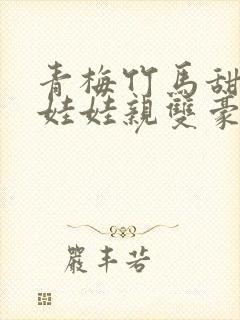 青梅竹馬甜
娃娃親雙豪
嚴丰若